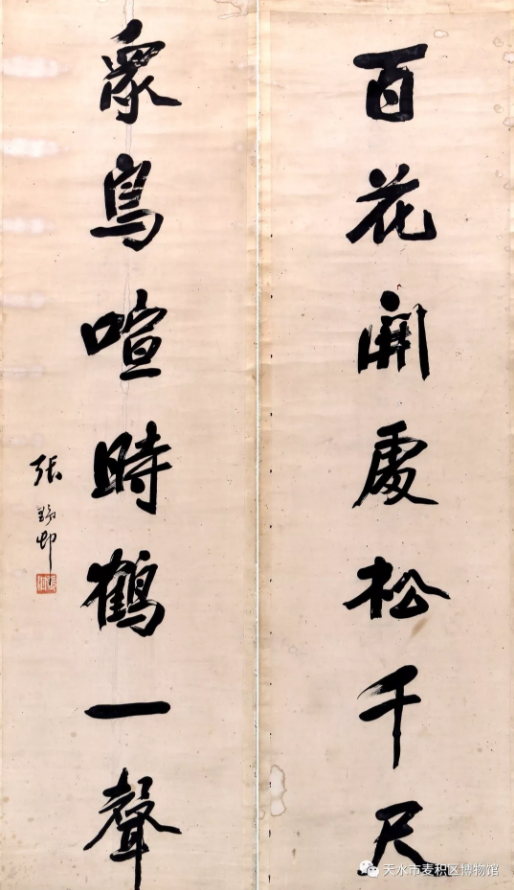 百花開處松千尺
衆鳥喧時鶴一聲
張野邨
天水市麦积区博物馆